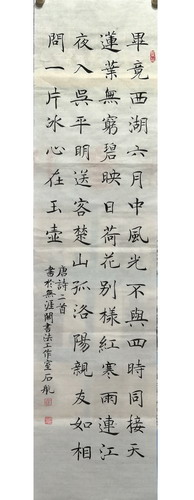 畢竟西湖六月中風光不與四時同接天
蓮葉無窮碧映日荷花別樣紅寒雨連江
夜入吳平明送客楚山孤洛陽親友如相
問一片冰心在玉壺
唐詩二首
書於無涯閣書法工作室石航